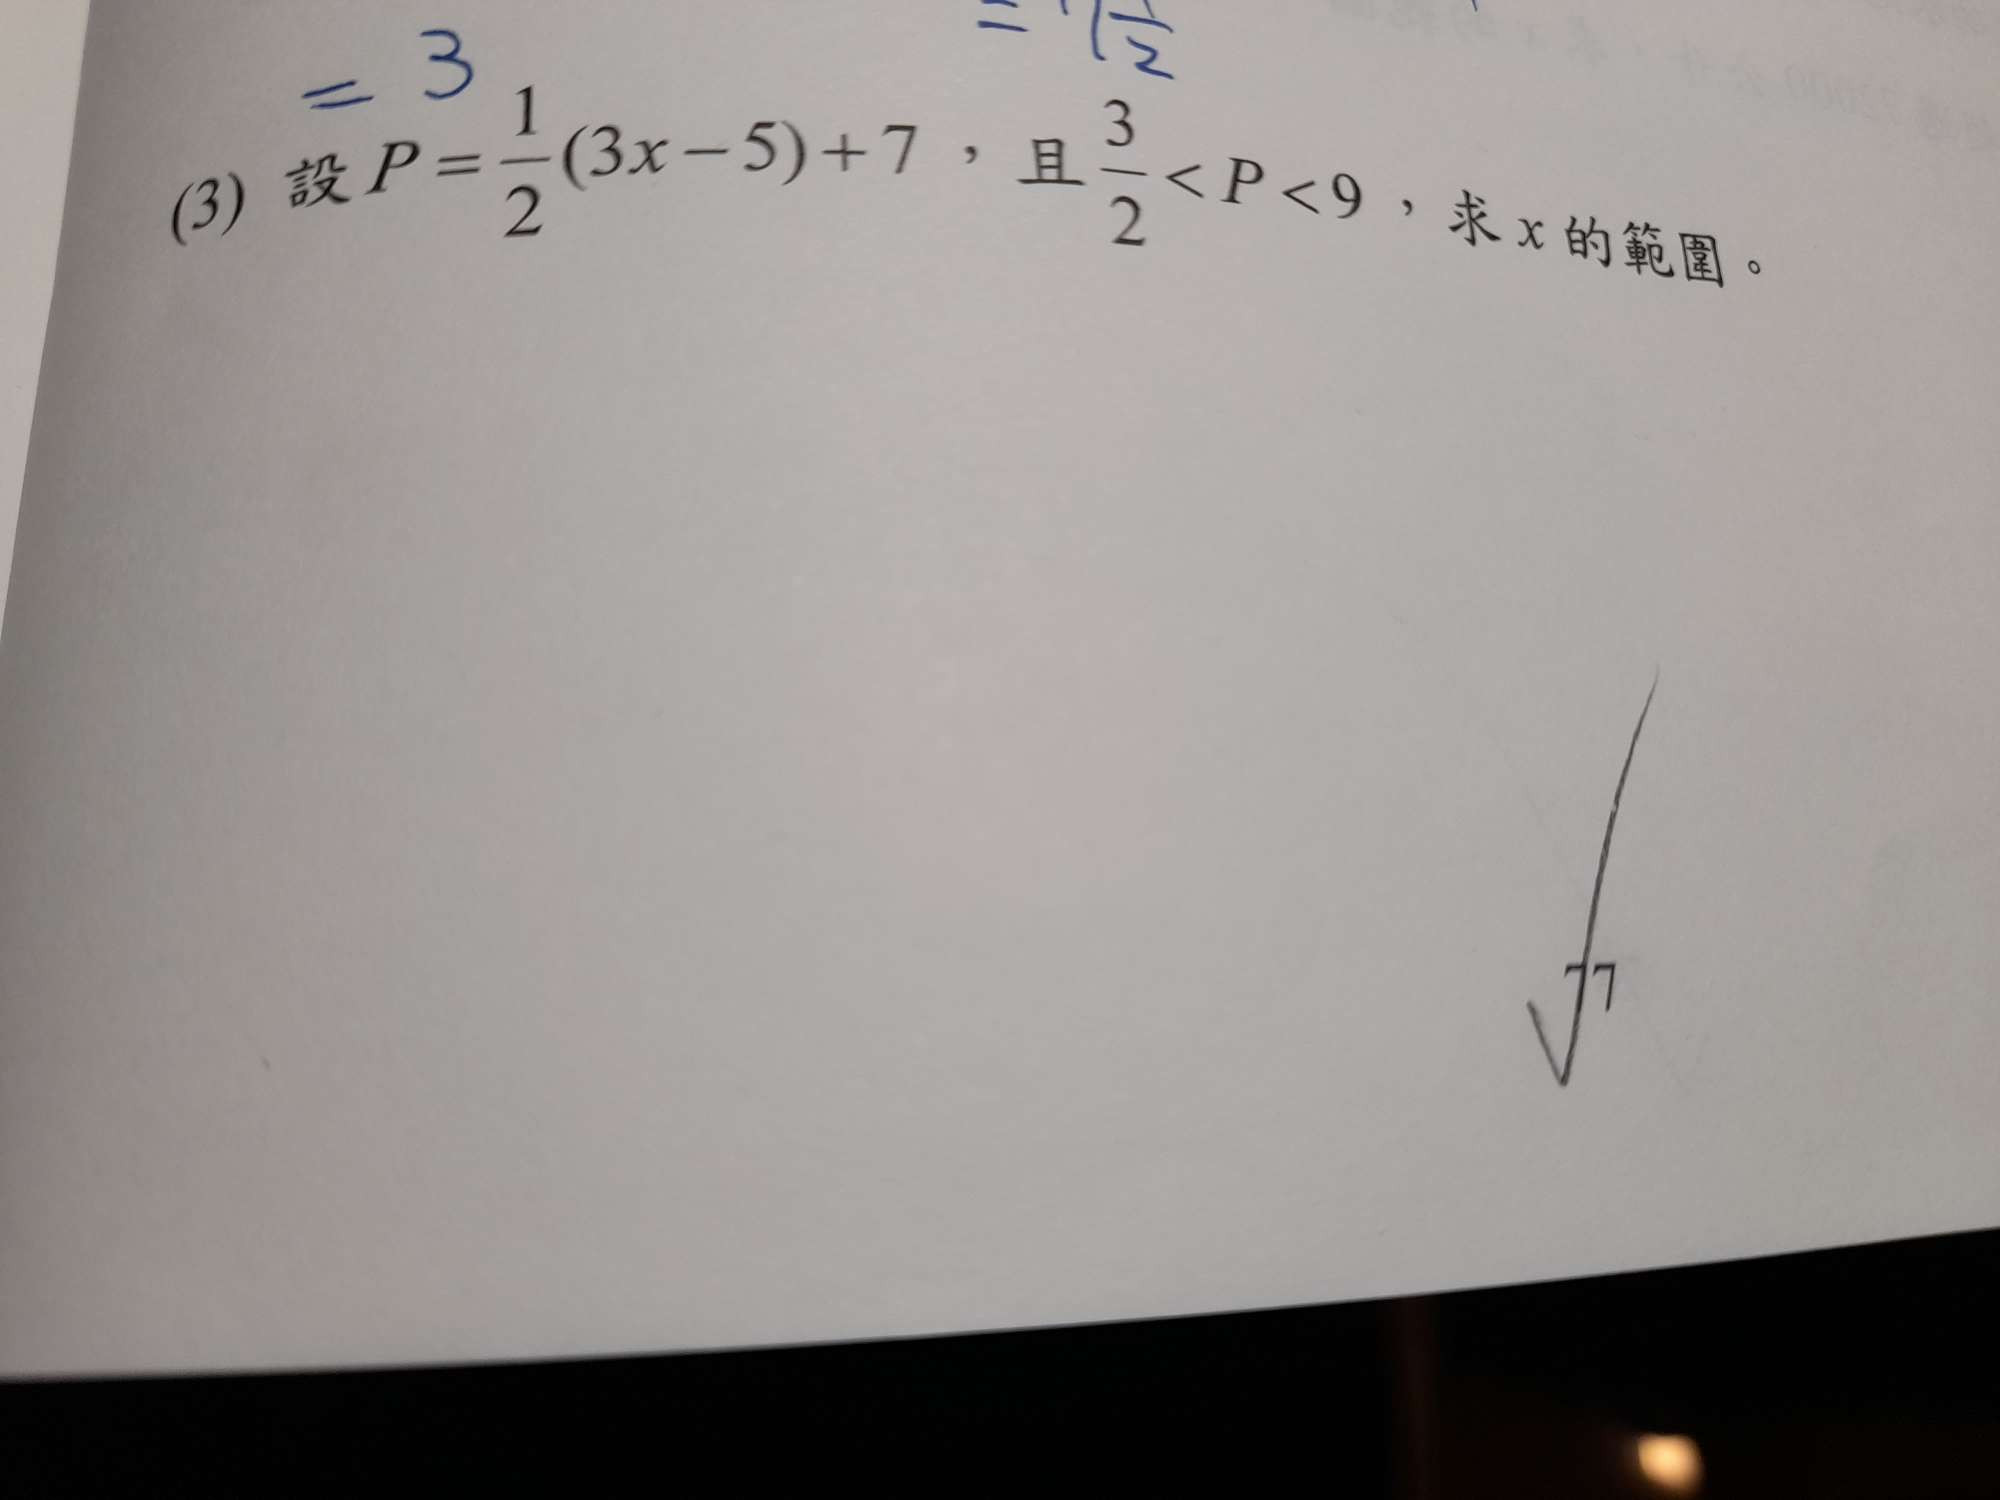 = 3
= 1/2
(3) 設 P = 1/2(3x-5)+7，且 3/2 < P < 9，求 x 的範圍。
77